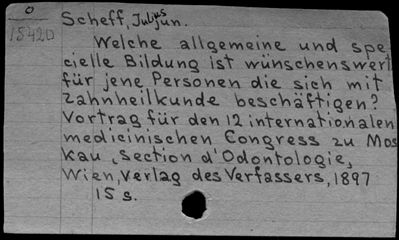 O
18420
Scheff, Julius jun.
Welche allgemeine und spe
cielle Bildung ist wünschenswert
für jene Personen die sich mit
Zahnheilkunde beschäftigen?
Vortrag für den 12 internationalen
medicinischen Congress zu Mos
kau, Section d'Odontologie,
Wien, Verlag des Verfassers, 1897
15 s.